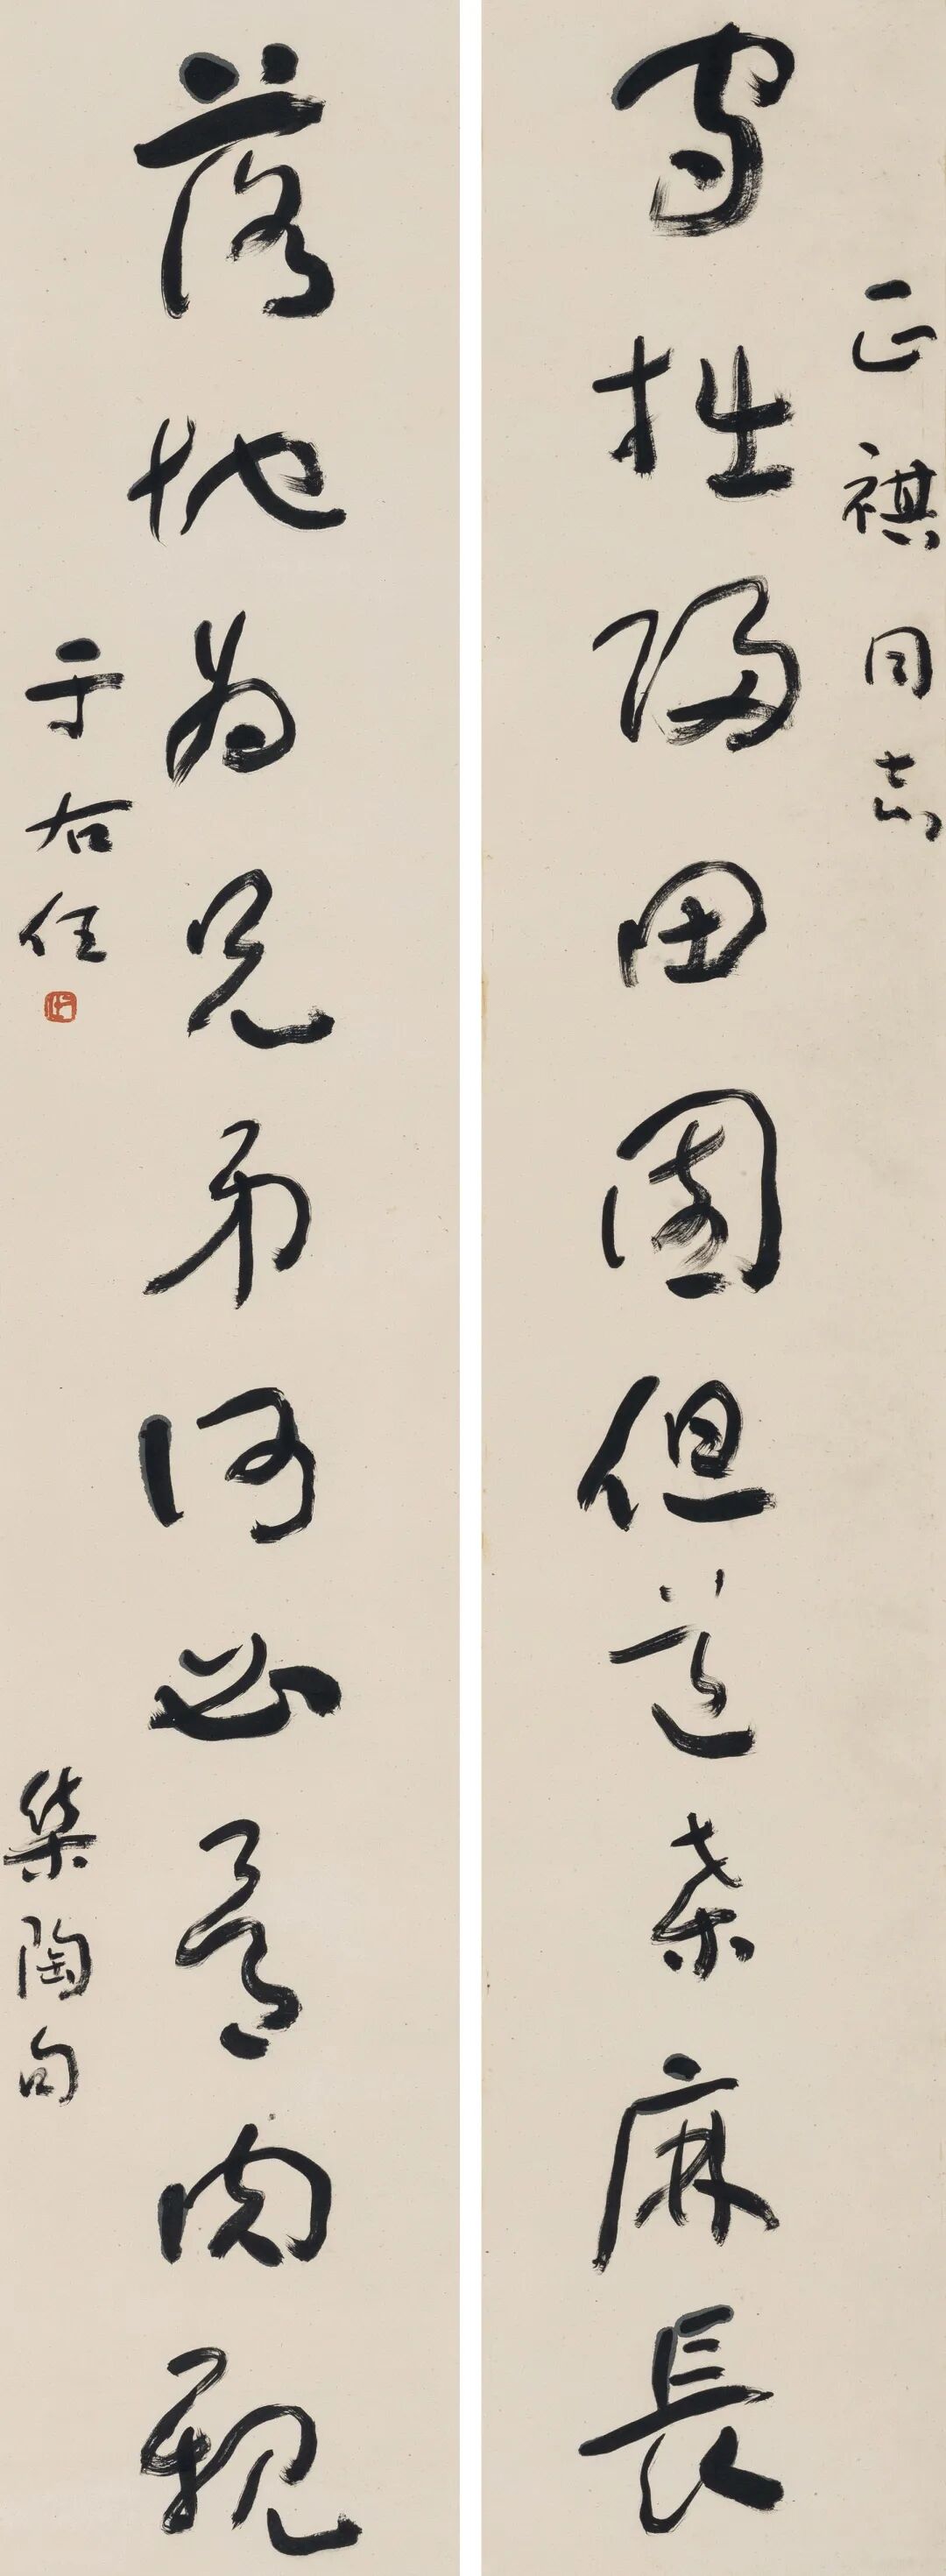 正祺同志
守拙歸田園但道桑麻長
落地為兄弟何必骨肉親
集陶句
于右任